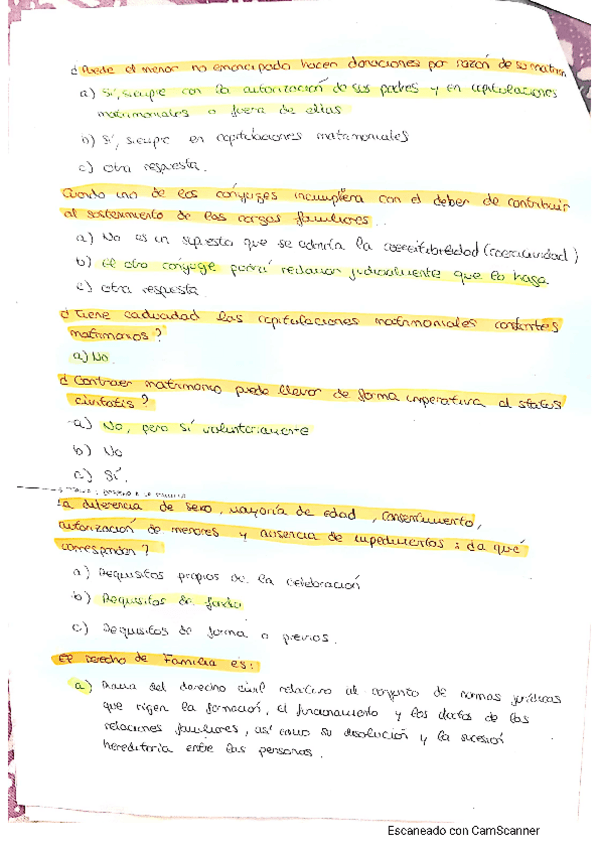 ¿Puede el menor no emancipado hacer donaciones por razón de su matrim
a) Sí, siempre con la autorización de sus padres y en capitulaciones
matrimoniales o fuera de ellas
b) Sí, siempre en capitulaciones matrimoniales
c) otra respuesta.
Cuando uno de los cónyuges incumpliera con el deber de contribuir
al sostenimiento de las cargas familiares..
a) No es un supuesto que se admita la (coercitividad)
b) el otro cónyuge podrá reclamar judicialmente que lo haga
c) otra respuesta.
¿Tiene caducidad las capitulaciones matrimoniales
matrimonios?
a) No.
¿Contraer matrimonio puede llevar de forma imperativa al status
civitatis?
a) No, pero sí voluntariamente
b) No
c) Sí.
La diferencia de sexo, mayoría de edad, consentimiento,
autorización de menores y ausencia de impedimentos: ¿a qué
corresponden?
a) Requisitos propios de la celebración
b) Requisitos de fondo
c) Requisitos de forma o previos.
El Derecho de Familia es:
a) Rama del derecho civil relativo al conjunto de normas jurídicas
que rigen la formación, el funcionamiento y los de las
relaciones familiares, así como su disolución y la sucesión
hereditaria entre las personas.
Escaneado con CamScanner